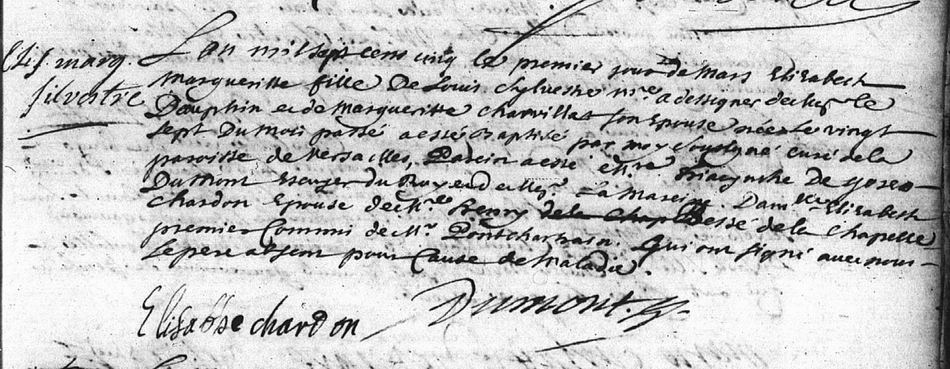 Elis. marg.
Silvestre
L'an mil sept cens cinq le premier jour de Mars Elizabeth
Margueritte fille De Louis Sylvestre mre a dessigner de Mgr le
Dauphin et de Margueritte Charvillat son Epouse née le vingt
sept Du mois passé a esté Baptisée par moy soussigné curé de la
paroisse de Versailles, Parein a esté Mre hiacynthe De
Dumont Escuyer du Roy et de Mgr La Mareine Damlle Elizabeth
Chardon Epouse de Mre Henry de la Chap Bessé de la Chapelle
premier Commis de Mr Pontchartrain. Qui ont signé avec nous
Le pere absent pour Cause de Maladie.
Elisabhe chardon
Dumont